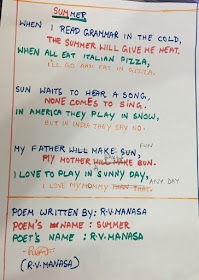 SUMMER
WHEN I READ GRAMMAR IN THE COLD,
THE SUMMER WILL GIVE ME HEAT.
WHEN ALL EAT ITALIAN PIZZA,
I'LL GO AND EAT IN PIZZA.
SUN WAITS TO HEAR A SONG,
NONE COMES TO SING.
IN AMERICA THEY PLAY IN SNOW,
BUT IN INDIA THEY SAY NO.
MY FATHER WILL MAKE FUN,
MY MOTHER WILL MAKE BUN.
I LOVE TO PLAY IN SUNNY DAY,
I LOVE MY MOMMY THAN THAT. ANY DAY
POEM WRITTEN BY: R.V.MANASA
POEM'S NAME : SUMMER
POET'S NAME : R.V.MANASA
(R.V.MANASA)